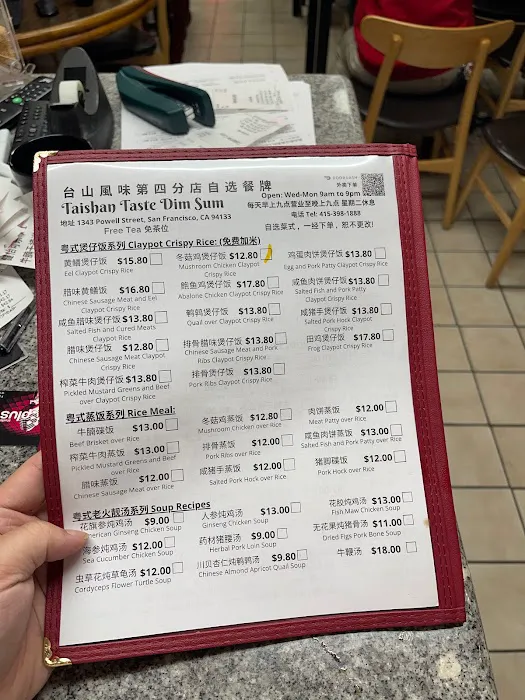 台山風味第四分店自选餐牌
Taishan Taste Dim Sum
Open: Wed-Mon 9am to 9pm
外卖下单
每天早上九点营业至晚上九点 星期二休息
地址 1343 Powell Street, San Francisco, CA 94133
电话 Tel: 415-398-1888
Free Tea 免茶位
自选菜式，一经下单，恕不更改!
粤式煲仔饭系列 Claypot Crispy Rice: (免费加米)
黄鳝煲仔饭 $15.80
Eel Claypot Crispy Rice
冬菇鸡煲仔饭 $12.80
Mushroom Chicken Claypot
Crispy Rice
鸡蛋肉饼煲仔饭 $13.80
Egg and Pork Patty Claypot Crispy Rice
腊味黄鳝饭 $16.80
Chinese Sausage Meat and Eel
Claypot Crispy Rice
鲍鱼鸡煲仔饭 $17.80
Abalone Chicken Claypot Crispy Rice
咸鱼肉饼煲仔饭 $13.80
Salted Fish and Pork Patty
Claypot Crispy Rice
咸鱼腊味煲仔饭 $13.80
Salted Fish and Cured Meats
Claypot Crispy Rice
鹌鹑煲仔饭 $13.80
Quail over Claypot Crispy Rice
咸猪手煲仔饭 $13.80
Salted Pork Hock Claypot
Crispy Rice
腊味煲仔饭 $12.80
Chinese Sausage Meat Claypot
Crispy Rice
排骨腊味煲仔饭 $13.80
Chinese Sausage Meat and Pork
Ribs Claypot Crispy Rice
田鸡煲仔饭 $17.80
Frog Claypot Crispy Rice
榨菜牛肉煲仔饭 $13.80
Pickled Mustard Greens and Beef
over Claypot Crispy Rice
排骨煲仔饭 $13.80
Pork Ribs Claypot Crispy Rice
粤式蒸饭系列 Rice Meal:
牛腩碟饭 $13.00
Beef Brisket over Rice
冬菇鸡蒸饭 $12.80
Mushroom Chicken over Rice
肉饼蒸饭 $12.00
Meat Patty over Rice
榨菜牛肉蒸饭 $13.00
Pickled Mustard Greens and Beef
over Rice
排骨蒸饭 $12.00
Pork Ribs over Rice
咸鱼肉蒸饭 $13.00
Salted Fish and Pork Patty over Rice
腊味蒸饭 $12.00
Chinese Sausage Meat over Rice
咸猪手蒸饭 $12.00
Salted Pork Hock over Rice
猪脚碟饭 $12.00
Pork Hock over Rice
粤式老火靓汤系列 Soup Recipes
花旗参炖鸡汤 $9.00
American Ginseng Chicken Soup
人参炖鸡汤 $13.00
Ginseng Chicken Soup
花胶炖鸡汤 $13.00
Fish Maw Chicken Soup
海参炖鸡汤 $12.00
Sea Cucumber Chicken Soup
药材猪𦟌汤 $9.00
Herbal Pork Loin Soup
无花果炖猪骨汤 $11.00
Dried Figs Pork Bone Soup
虫草花炖草龟汤 $12.00
Cordyceps Flower Turtle Soup
川贝杏仁炖鹌鹑汤 $9.80
Chinese Almond Apricot Quail Soup
牛鞭汤 $18.00
plus